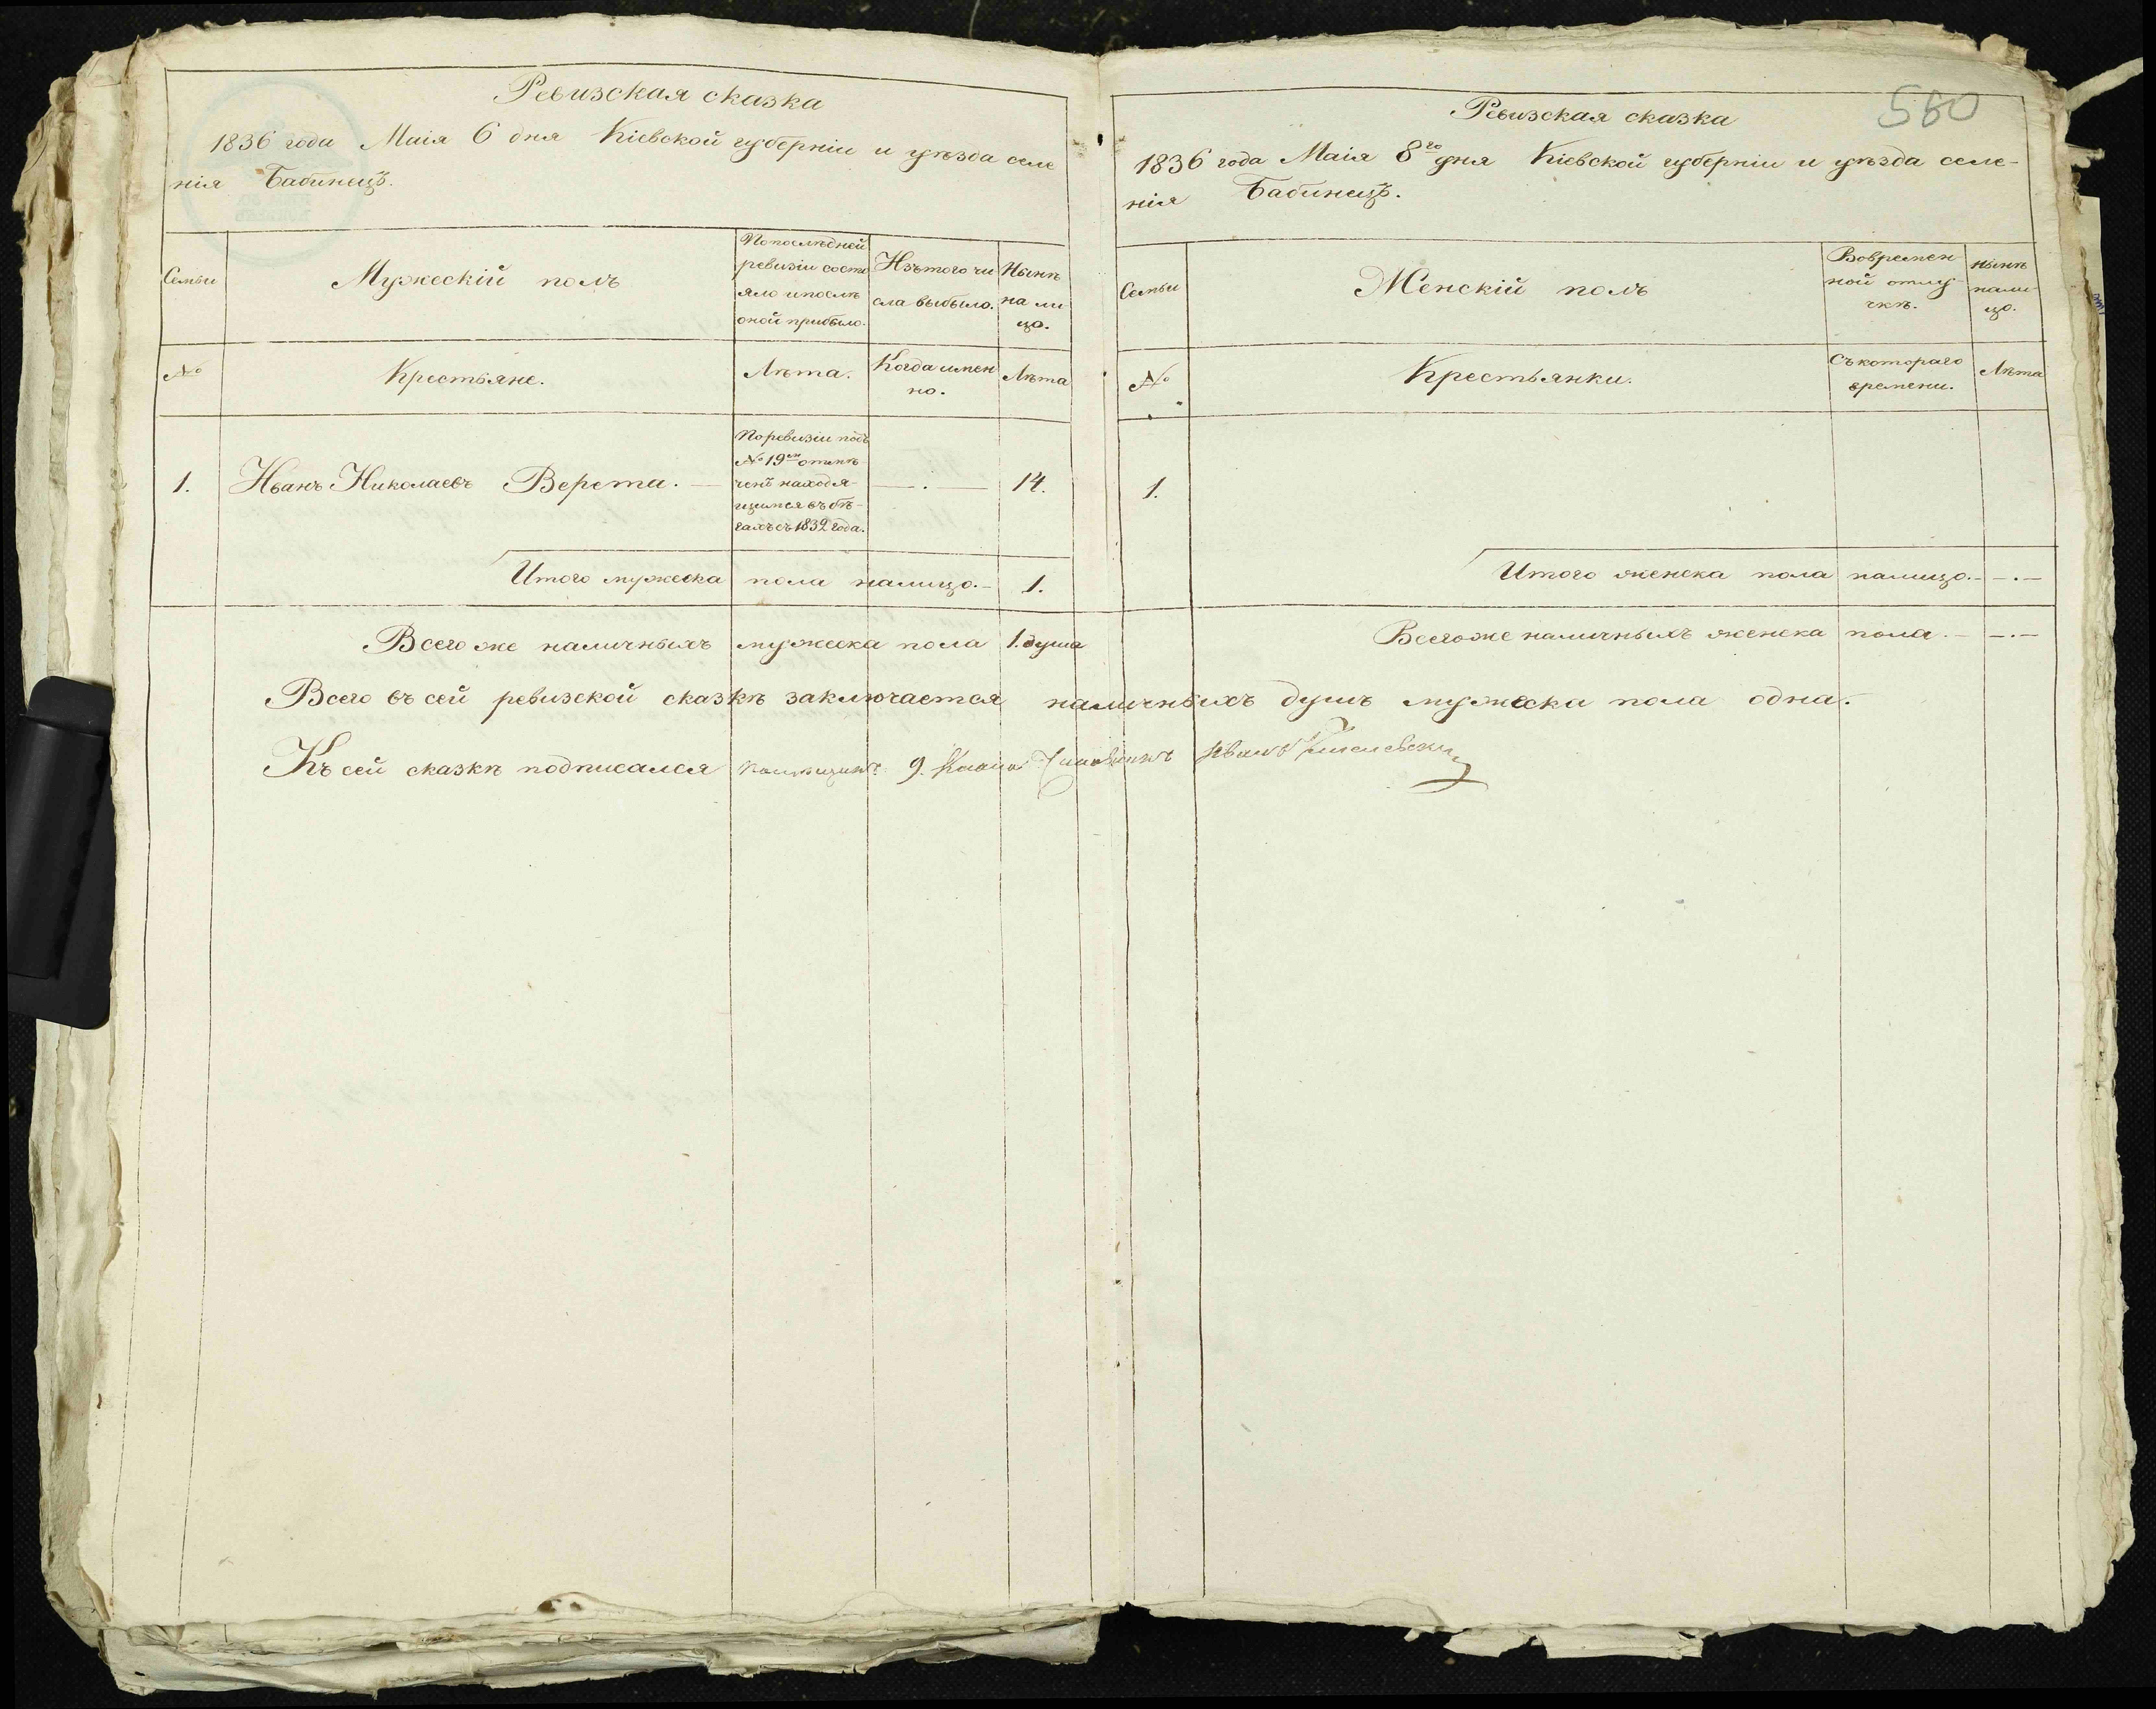 Ревизская сказка
1836 года Маія 6 дня Кіевской губерніи и уѣзда селе
нія Бабинецъ.
Семьи
Мужескій полъ
По послѣдней
ревизіи состо
яло и послѣ
оной прибыло.
Изъ того чи
сла выбыло.
Нынѣ
на ли
цо.
№
Крестьяне.
Лѣта.
Когда имен
но.
Лѣта
1.
Иванъ Николаевъ Верета.
По ревизіи подъ
№ 19ем отмѣ
ченъ находя-
щимся въ бѣ-
гахъ съ 1832 года.
14.
Итого мужеска пола налицо.- 1.
Всего же наличныхъ мужеска пола 1. душа
580
Ревизская сказка
1836 года Маія 8го дня Кіевской губерніи и уѣзда селе-
нія Бабинецъ.
Семьи
Женскій полъ
Во времен
ной отлу-
чкѣ.
нынѣ
нали-
цо.
№
Крестьянки.
Съ котораго
времени.
Лѣта
1.
Итого женска пола налицо.- -.-
Всего же наличныхъ женска пола.- -.-
Всего въ сей ревизской сказкѣ заключается наличныхъ душъ мужеска пола одна.
Къ сей сказкѣ подписался 9. Класса Чиновникъ Иванъ